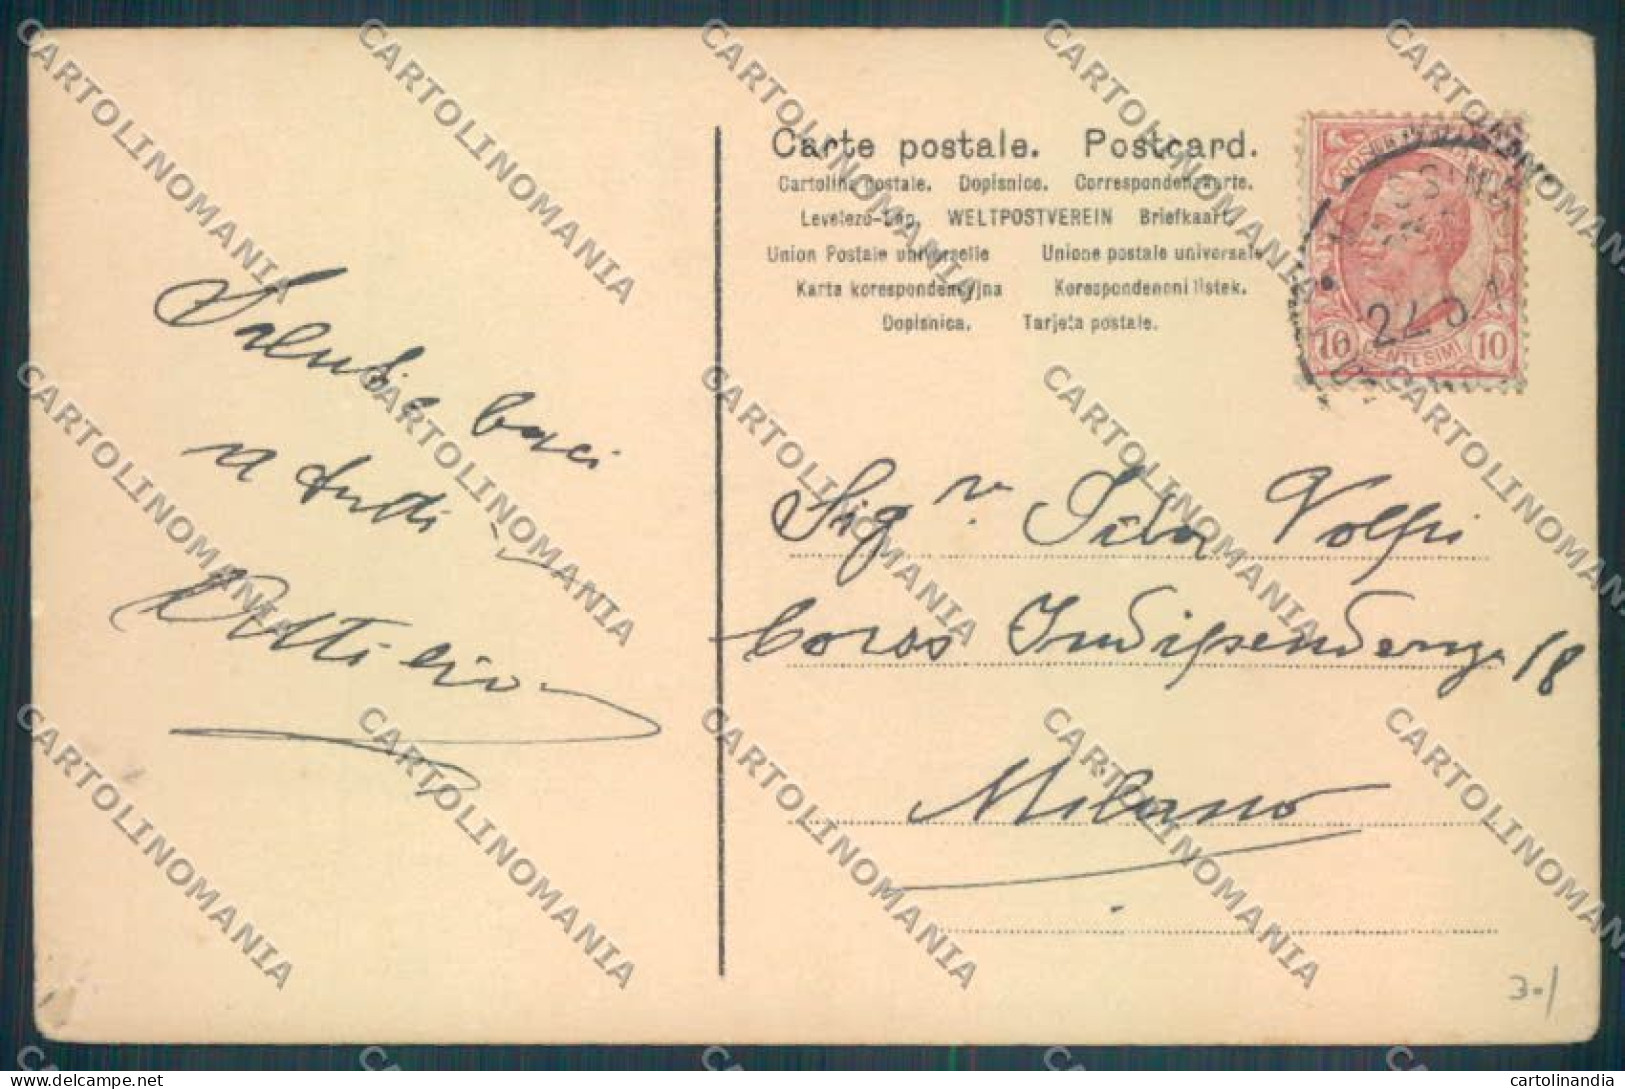 Carte postale. Postcard.
Cartolina postale. Dopisnice. Correspondenzkarte.
Levelezo-Lap. WELTPOSTVEREIN Briefkaart.
Union Postale universelle Unione postale universale
Karta korespondencyjna Korespondencni listek.
Dopisnica. Tarjeta postale.
10 CENTESIMI 10
Saluti e baci
a tutti
Sig.ra Volpi
Corso Indipendenza 18
Milano
3.1
CARTOLINOMANIA
www.delcampe.net
cartolinandia